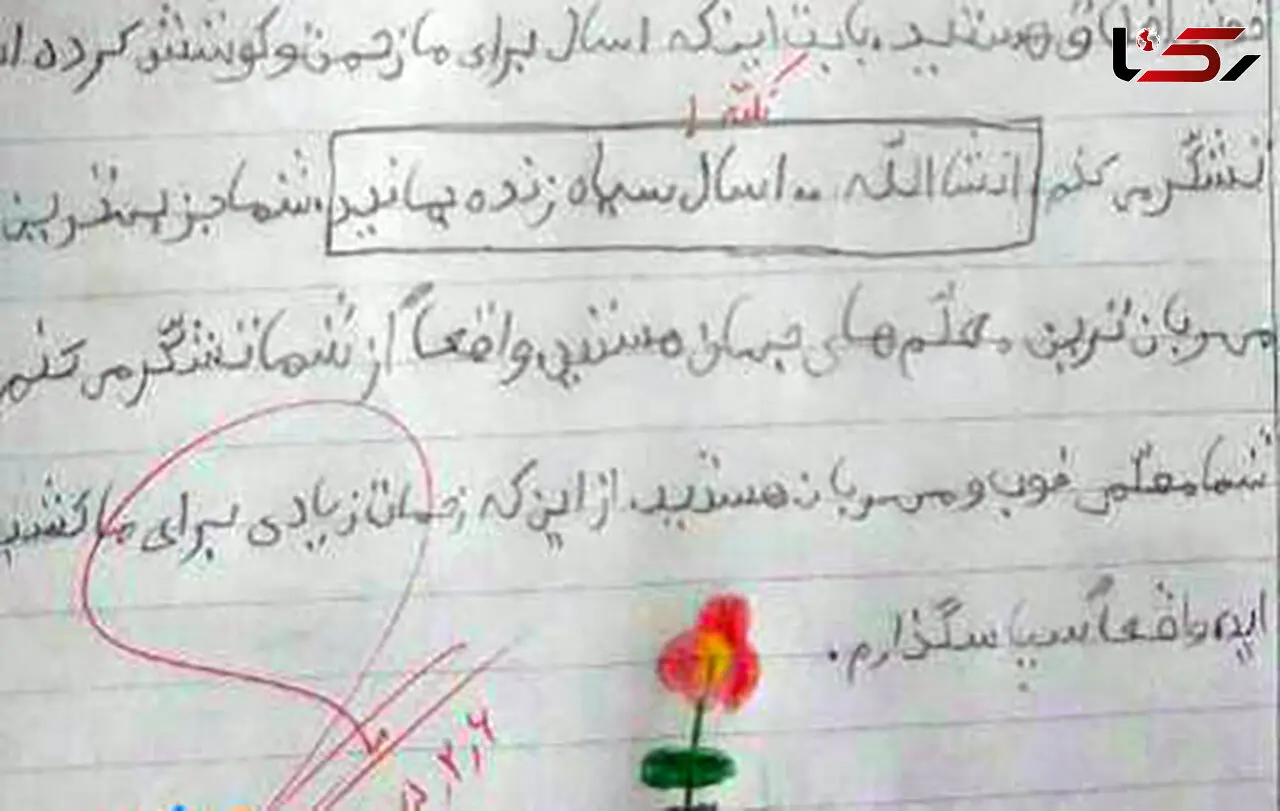 رکنا
هستید. بابت این که امسال برای ما زحمت و کوشش کرده
نکته ۱
تشکّر می کنم انشاالله .. امسال سیاه زنده بمانید. شما جز بهترین
مهربان ترین معلّم های جهان هستید واقعاً از شما تشکّر می کنم
شما معلّمی خوب و مهربان هستید. از این که زحمات زیادی برای ما کشید
اید، واقعاً سپاسگذارم.